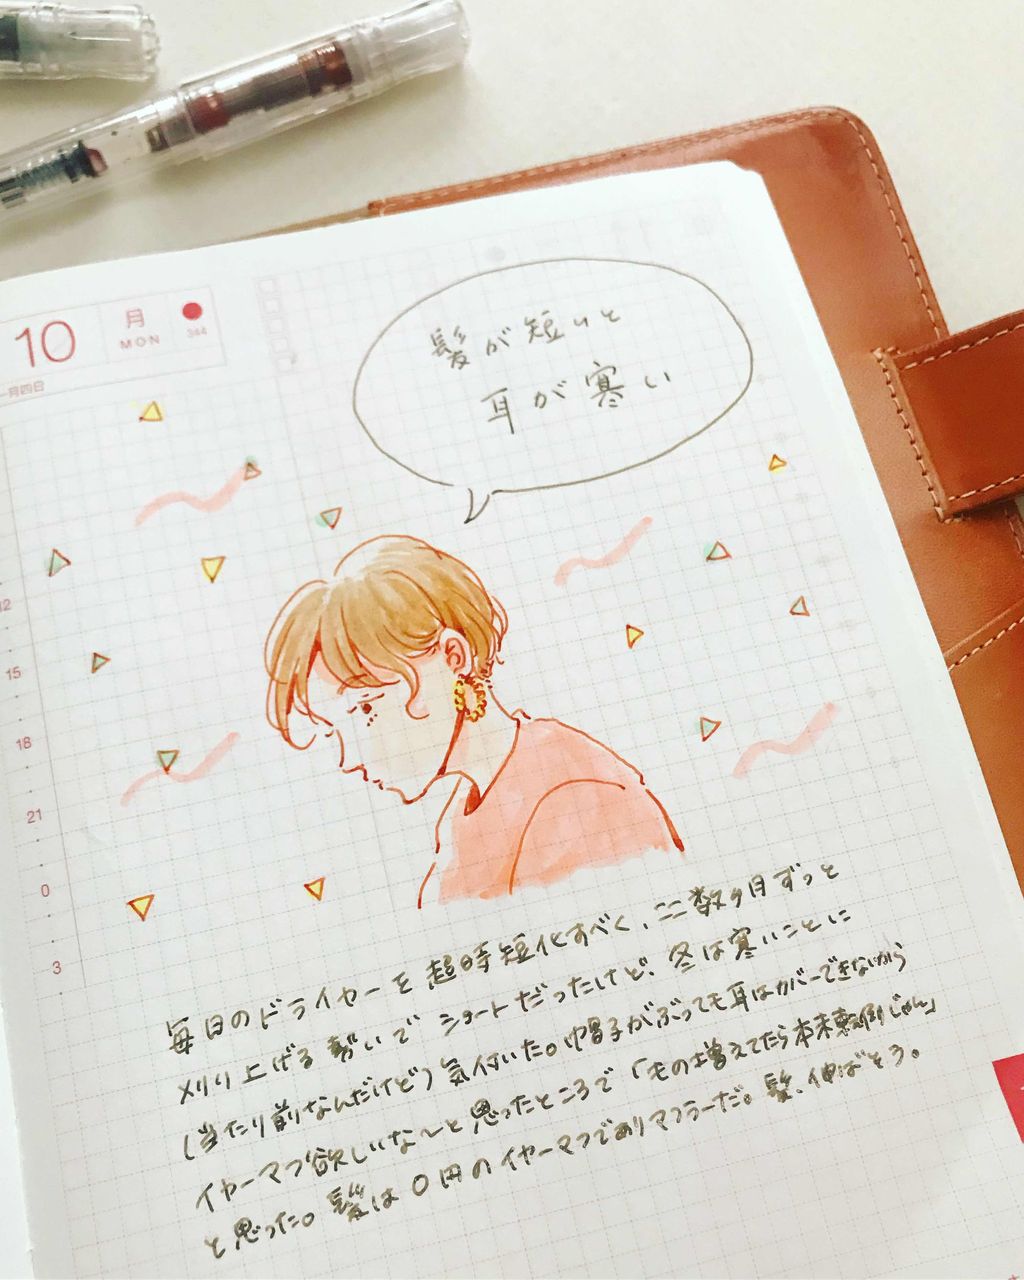 10
月
MON
344
一月四日
髪が短いと
耳が寒い
12
15
18
21
0
3
毎日のドライヤーを超時短化すべく、ここ数ヶ月ずっと
メリリ上げる勢いでショートだったけど、冬は寒いことに
(当たり前なんだけど)気付いた。帽子がぶっても耳はカバーできないから
イヤーマフ欲しいな〜と思ったところで「もの増えてたら本末転倒じゃん」
と思った。髪は0円のイヤーマフでありマフラーだ。髪、伸ばそう。